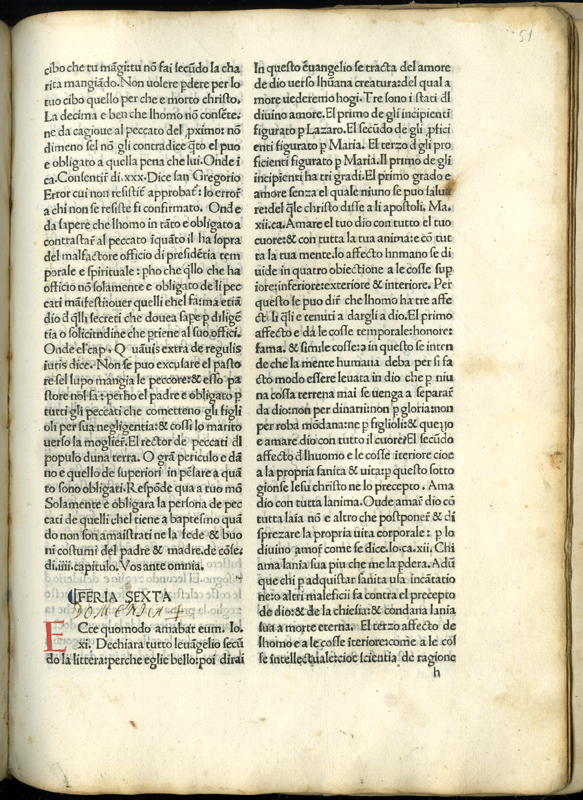 51
cibo che tu mãgi:tu nõ fai secũdo la cha
rita mangiãdo. Non uolere ꝑdere per lo
tuo cibo quello per che e morto christo.
La decima e ben che lhomo nõ consẽte:
ne da cagioue al peccato del ꝓximo: nõ
dimeno sel nõ gli contradice q̃to el puo
e obligato a quella pena che lui. Onde i
ca. Consentir̃ di .xxx. Dice san Gregorio
Error cui non resistir̃ approbar̃: lo error̃
a chi non se resiste fi confirmato. Onde
da sapere che lhomo in tãto e obligato a
contrastar̃ al peccato iquãto il ha sopra
del malfactore officio di presidẽtia tem
porale e spirituale : ꝑho che q̃llo che ha
officio nõ solamente e obligato de li pec
cati mãifesti:ouer quelli ehel fa:ma etiã
dio d q̃lli secreti che douea sape ꝑ diligẽ
tia o solicitndine che ꝑtiene al suo offici.
Onde el cap. Q uãuis extra de regulis
iuris dice. Non se puo excusare el pasto
re sel lupo mangia le peccore:& esso pa
store nol sa : perho el padre e obligato ꝑ
tutti gli peccati che cometteno gli figli
oli per sua negligentia:& cossi lo marito
uerso la moglier̃. El rector de peccati dl
populo duna terra. O grã periculo e dã
no e quello de superiori in pẽlare a quã
to sono obligati. Respõde qua a tuo mõ
Solamente e obligara la persona de pec
cati de quelli chel tiene a baptesmo quã
do non son amaistrati ne la fede & buo
ni costumi del padre & madre. de cõse.
di.iiii.capitulo. Vos ante omnia.
FERIA SEXTA
DOMENICA 4
Ecce quomodo amabat eum. Io.
xi. Dechiara tutto leuãgelio secũ
do la littera:perche eglie bello:poi dirai
In questo ẽuangelio se tracta del amore
de dio uerso lhũana creatura:del qual a
more uederemo hogi. Tre sono i stati dl
diuino amore. El primo de gli incipienti
figurato ꝑ Lazaro. El secũdo de gli ꝓfici
enti figurato ꝑ Maria. El terzo d gli pro
ficienti figurato ꝑ Maria. Il primo de gli
incipienti ha tri gradi. El primo grado e
amore senza el quale niuno se puo salua
re:del q̃le christo disse a li apostoli. Ma.
xii.ca. Amare el tuo dio con tutto el tuo
cuore:& con tutta la tua anima:e cõ tut
ta la tua mente. lo affecto hnmano se di
uide in quatro obiectione a le cosse sup
iore:inferiore:exteriore & interiore. Per
questo se puo dir̃ che lhomo ha tre affe
cti li q̃li e tenuti a dargli a dio. El primo
affecto e dá le cosse temporale:honore:
fama. & simile cosse:a in questo se inten
de che la mente humana deba per si fa
cto modo essere leuata in dio che ꝑ niu
na cossa terrena mai se uenga a separar̃
da dio:non per dinarii:non ꝑ gloria:non
per roba mõdana:ne ꝑ figlioli:& questo
e amare dio con tutto il cuore: El secũdo
affecto d lhuomo e le cosse iteriore cioe
a la propria sanita & uita:ꝑ questo sotto
gionse Iesu christo ne lo precepto . Ama
dio con tutta lanima. Oude amar̃ dio cõ
tutta laĩa nõ e altro che postponer̃ & di
sprezare la propria uita corporale : ꝑ lo
diuino amor̃ come se dice. lo.ca.xii. Chi
ama lania sua piu che me la pdera. Adũ
que chi ꝑ adquistar sanita usa incãtatio
ne:o altri maleficii fa contra el precepto
de dio:& de la chiesia:& condana lania
sua a morte eterna. El terzo affecto de
lhomo e a le cosse iteriore:come a le cos
se intellectuale:cioe scientia de ragione
h